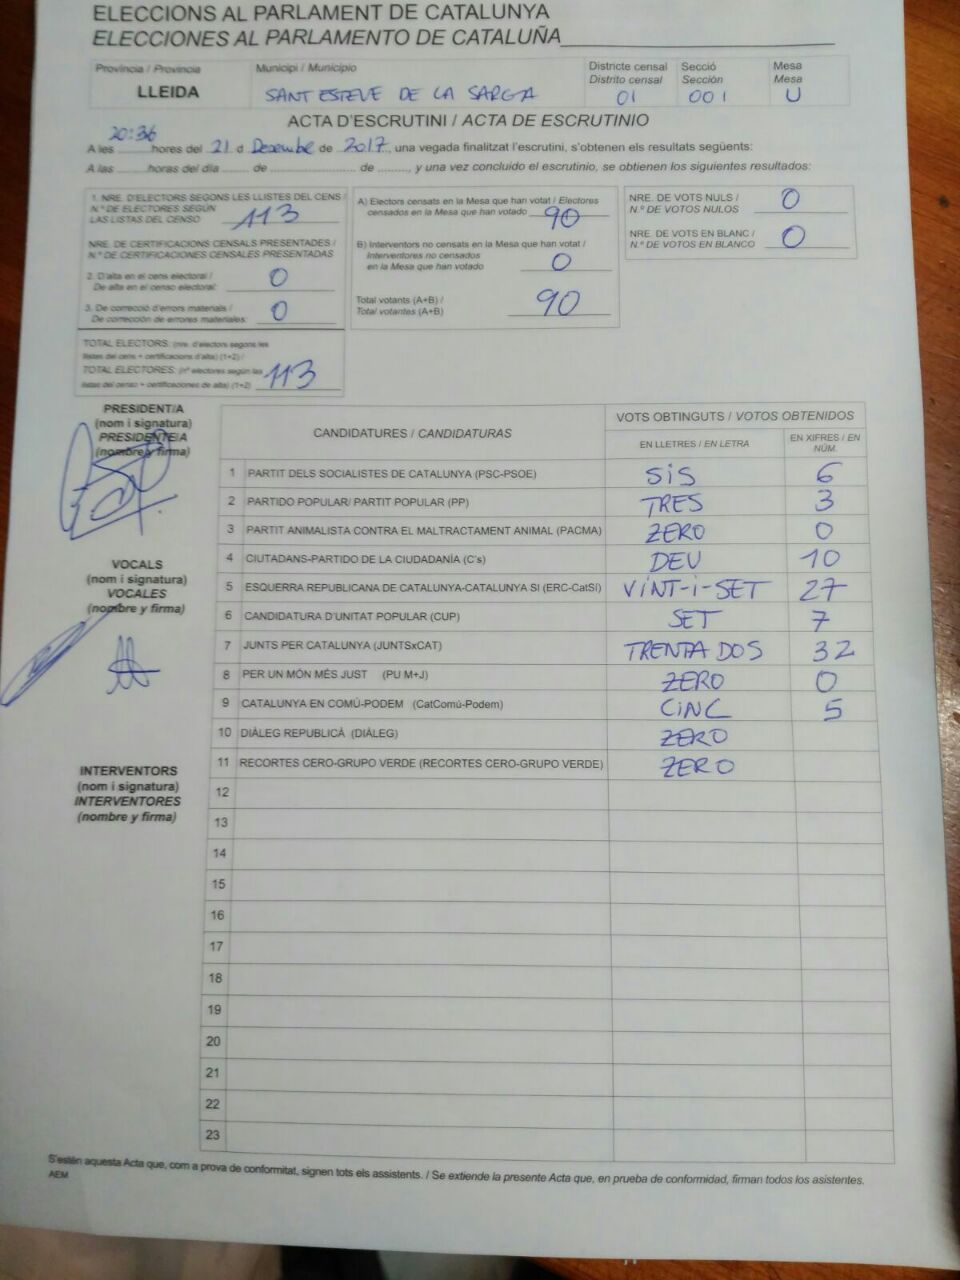 ELECCIONS AL PARLAMENT DE CATALUNYA
ELECCIONES AL PARLAMENTO DE CATALUÑA
Província / Provincia
LLEIDA
Municipi / Municipio
SANT ESTEVE DE LA SARGA
Districte censal
Distrito censal
01
Secció
Sección
001
Mesa
Mesa
U
ACTA D'ESCRUTINI / ACTA DE ESCRUTINIO
20:36
A les hores del 21 d Desembre de 2017, una vegada finalitzat l'escrutini, s'obtenen els resultats següents:
A las horas del día de de , y una vez concluido el escrutinio, se obtienen los siguientes resultados:
1. NRE. D'ELECTORS SEGONS LES LLISTES DEL CENS /
N.º DE ELECTORES SEGÚN
LAS LISTAS DEL CENSO 113
NRE. DE CERTIFICACIONS CENSALS PRESENTADES /
N.º DE CERTIFICACIONES CENSALES PRESENTADAS
2. D'alta en el cens electoral /
De alta en el censo electoral: 0
3. De correcció d'errors materials /
De corrección de errores materiales: 0
TOTAL ELECTORS: (nre. d'electors segons les
llistes del cens + certificacions d'alta) (1+2) /
TOTAL ELECTORES: (nº electores según las
listas del censo + certificaciones de alta) (1+2) 113
A) Electors censats en la Mesa que han votat / Electores
censados en la Mesa que han votado 90
B) Interventors no censats en la Mesa que han votat /
Interventores no censados
en la Mesa que han votado 0
Total votants (A+B) /
Total votantes (A+B) 90
NRE. DE VOTS NULS /
N.º DE VOTOS NULOS 0
NRE. DE VOTS EN BLANC /
N.º DE VOTOS EN BLANCO 0
PRESIDENT/A
(nom i signatura)
PRESIDENTE/A
(nombre y firma)
VOCALS
(nom i signatura)
VOCALES
(nombre y firma)
INTERVENTORS
(nom i signatura)
INTERVENTORES
(nombre y firma)
CANDIDATURES / CANDIDATURAS
VOTS OBTINGUTS / VOTOS OBTENIDOS
EN LLETRES / EN LETRA
EN XIFRES / EN
NÚM.
1 PARTIT DELS SOCIALISTES DE CATALUNYA (PSC-PSOE) SiS 6
2 PARTIDO POPULAR/ PARTIT POPULAR (PP) TRES 3
3 PARTIT ANIMALISTA CONTRA EL MALTRACTAMENT ANIMAL (PACMA) ZERO 0
4 CIUTADANS-PARTIDO DE LA CIUDADANÍA (C's) DEU 10
5 ESQUERRA REPUBLICANA DE CATALUNYA-CATALUNYA SÍ (ERC-CatSí) ViNT-i-SET 27
6 CANDIDATURA D'UNITAT POPULAR (CUP) SET 7
7 JUNTS PER CATALUNYA (JUNTSxCAT) TRENTA DOS 32
8 PER UN MÓN MÉS JUST (PU M+J) ZERO 0
9 CATALUNYA EN COMÚ-PODEM (CatComú-Podem) CiNC 5
10 DIÀLEG REPUBLICÀ (DIÀLEG) ZERO
11 RECORTES CERO-GRUPO VERDE (RECORTES CERO-GRUPO VERDE) ZERO
12
13
14
15
16
17
18
19
20
21
22
23
S'estén aquesta Acta que, com a prova de conformitat, signen tots els assistents. / Se extiende la presente Acta que, en prueba de conformidad, firman todos los asistentes.
AEM